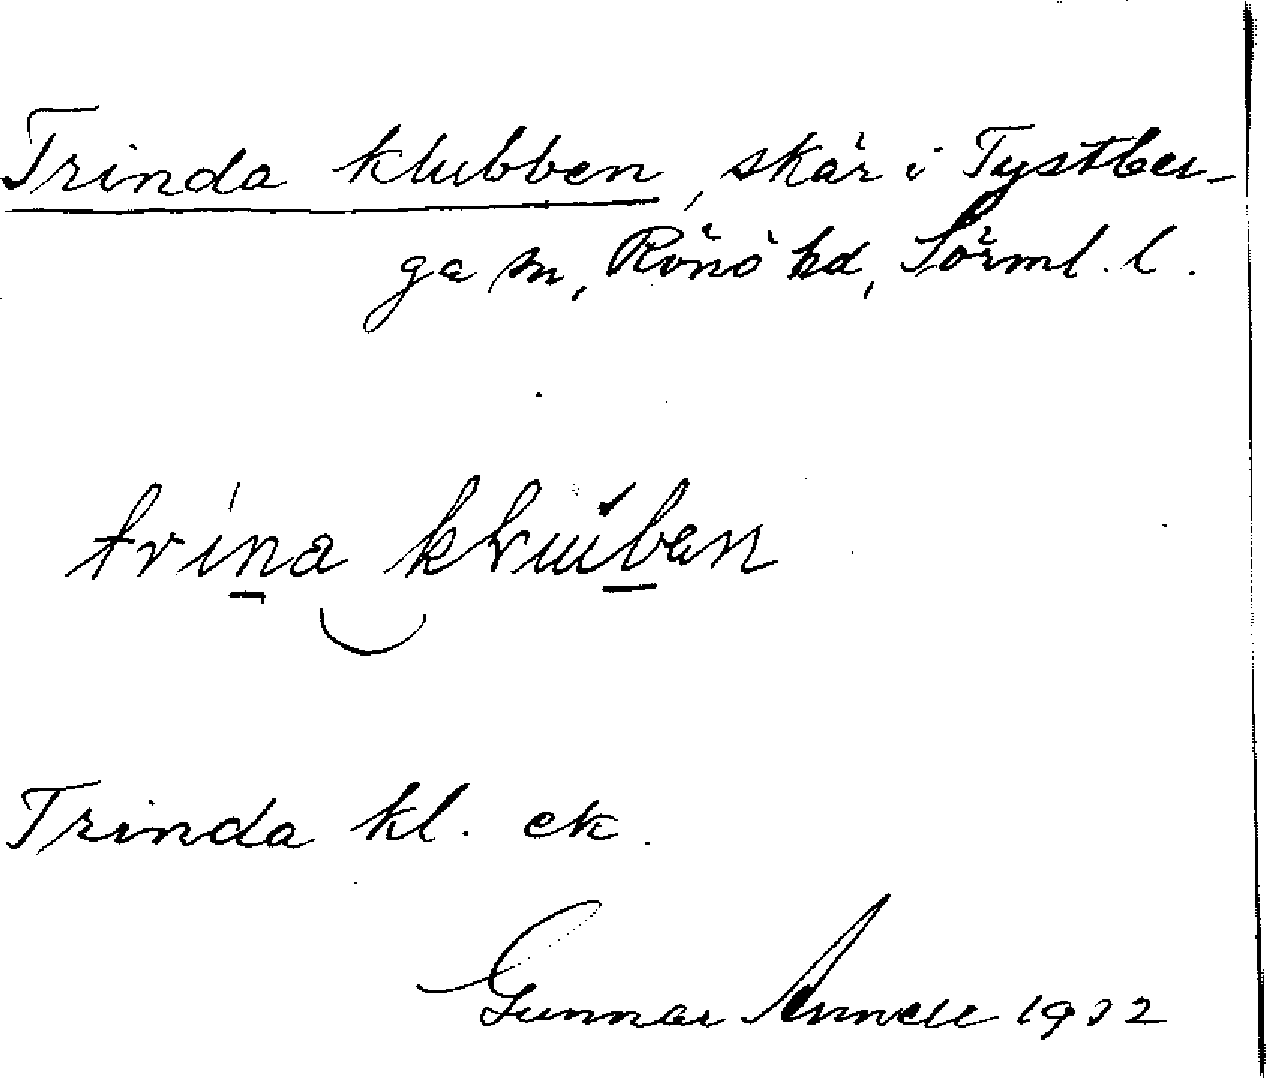 Trinda klubben, skär i Tystber-
ga sn, Rönö hd, Sörml. l.
trina
Trinda kl. ek.
Gunnar 1932